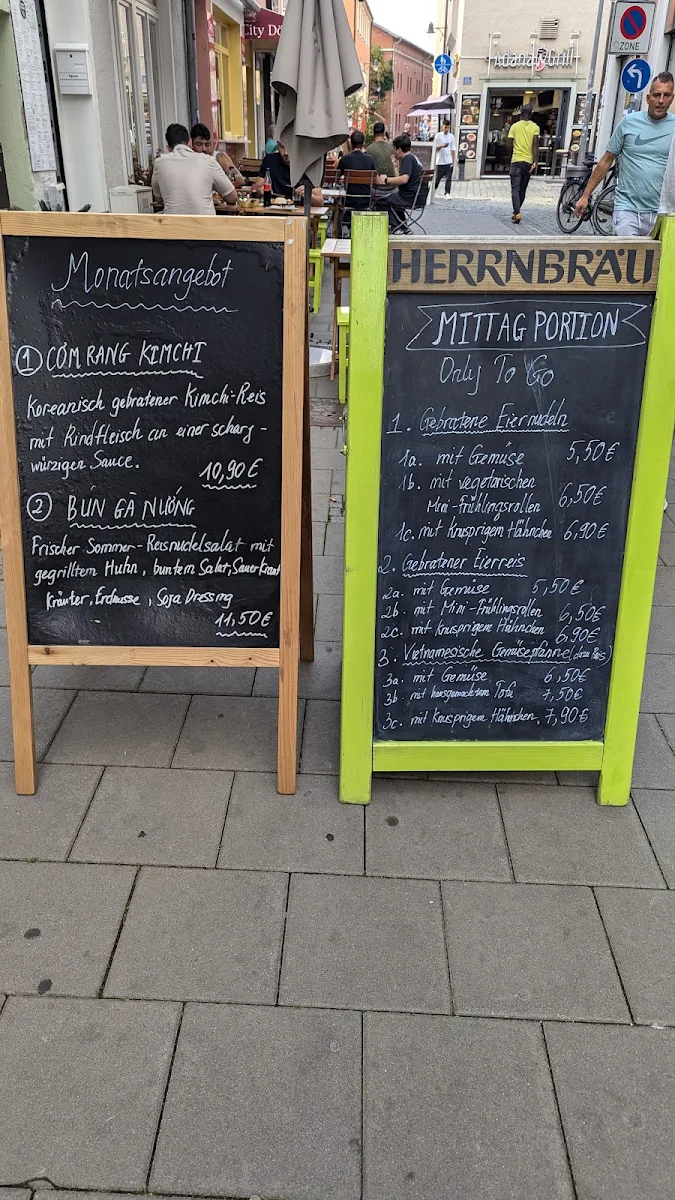 City Dö
ZONE
HERRNBRÄU
Monatsangebot
1 CƠM RANG KIMCHI
Koreanisch gebratener Kimchi-Reis
mit Rindfleisch an einer scharf-
würzigen Sauce.
10,90€
2 BÚN GÀ NƯỚNG
Frischer Sommer-Reisnudelsalat mit
gegrilltem Huhn, buntem Salat, Sauerkraut
Kräuter, Erdnüsse, Soja Dressing
11,50€
MITTAG PORTION
Only To Go
1. Gebratene Eiernudeln
1a. mit Gemüse 5,50€
1b. mit vegetarischen
Mini-Frühlingsrollen 6,50€
1c. mit Knusprigem Hähnchen 6,90€
2. Gebratener Eierreis
2a. mit Gemüse 5,50€
2b. mit Mini-Frühlingsrollen 6,50€
2c. mit Knusprigem Hähnchen 6,90€
3. Vietnamesische Gemüsepfanne (dazu Reis)
3a. mit Gemüse 6,50€
3b. mit hausgemachtem Tofu 7,50€
3c. mit Knusprigem Hähnchen. 7,90€